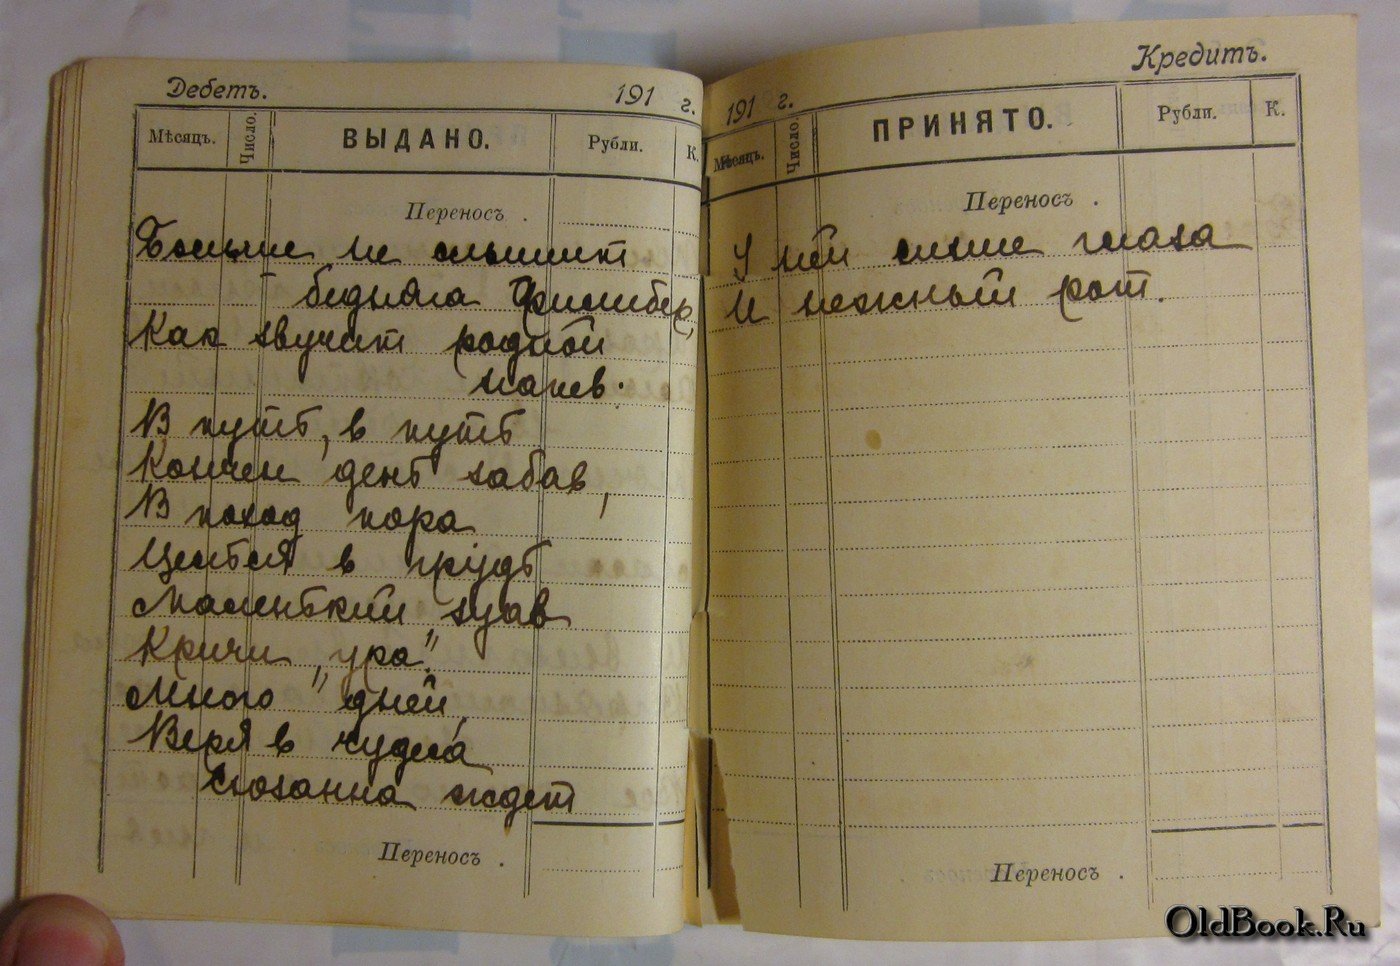 Дебетъ.
191 г.
Мѣсяцъ.
Число.
ВЫДАНО.
Рубли.
К.
Переносъ .
Больше не слышит
бедняга Фримбер,
Как звучит родной
напев.
В путь, в путь
Кончен день забав,
В поход пора
Целься в грудь
Маленький зуав
Кричи „ура".
Много дней,
Веря в чудеса
Сюзанна ждет
Переносъ .
Кредитъ.
191 г.
Мѣсяцъ.
Число
ПРИНЯТО.
Рубли.
К.
Переносъ .
У ней синие глаза
И нежный рот.
Переносъ .
OldBook.Ru